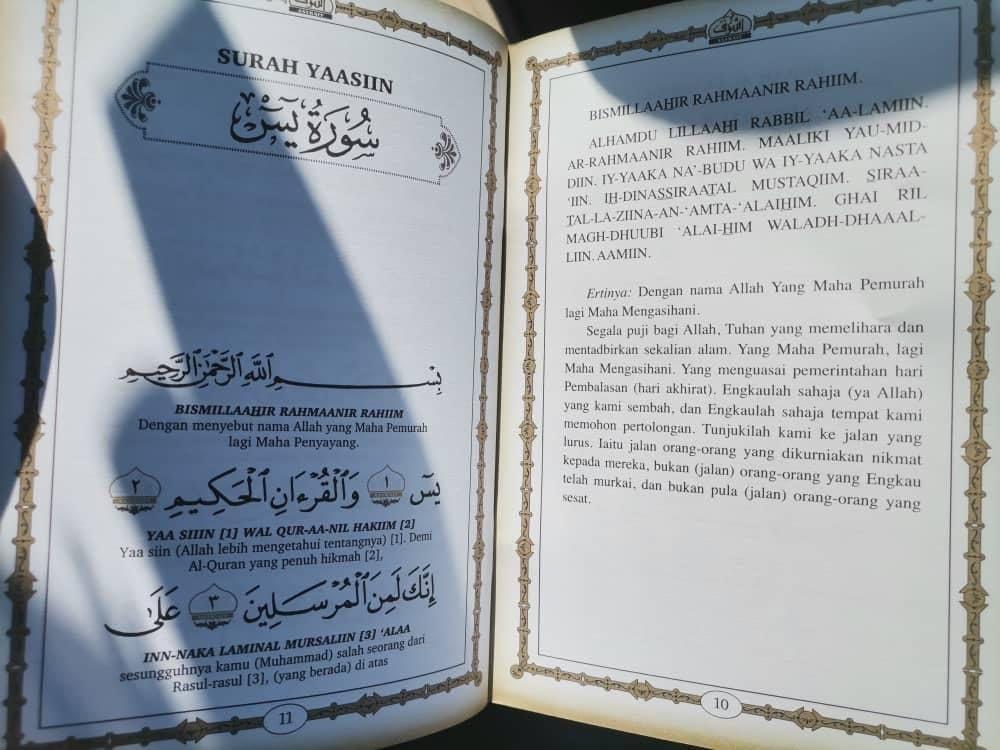 BISMILLAAHIR RAHMAANIR RAHIIM.
ALHAMDU LILLAAHI RABBIL ‘AA-LAMIIN.
AR-RAHMAANIR RAHIIM. MAALIKI YAU-MID-
DIIN. IY-YAAKA NA’-BUDU WA IY-YAAKA NASTA
‘IIN. IH-DINASSIRAATAL MUSTAQIIM. SIRAA-
TAL-LA-ZIINA-AN-‘AMTA-‘ALAIHIM. GHAI RIL
MAGH-DHUUBI ‘ALAI-HIM WALADH-DHAAAL-
LIIN. AAMIIN.
Ertinya: Dengan nama Allah Yang Maha Pemurah
lagi Maha Mengasihani.
Segala puji bagi Allah, Tuhan yang memelihara dan
mentadbirkan sekalian alam. Yang Maha Pemurah, lagi
Maha Mengasihani. Yang menguasai pemerintahan hari
Pembalasan (hari akhirat). Engkaulah sahaja (ya Allah)
yang kami sembah, dan Engkaulah sahaja tempat kami
memohon pertolongan. Tunjukilah kami ke jalan yang
lurus. Iaitu jalan orang-orang yang dikurniakan nikmat
kepada mereka, bukan (jalan) orang-orang yang Engkau
telah murkai, dan bukan pula (jalan) orang-orang yang
sesat.
10
SURAH YAASIIN
سُورَةُ يسٓ
بِسْمِ ٱللَّهِ ٱلرَّحْمَٰنِ ٱلرَّحِيمِ
BISMILLAAHIR RAHMAANIR RAHIIM
Dengan menyebut nama Allah yang Maha Pemurah
lagi Maha Penyayang.
يسٓ ١ وَٱلْقُرْءَانِ ٱلْحَكِيمِ ٢
YAA SIIIN [1] WAL QUR-AA-NIL HAKIIM [2]
Yaa siin (Allah lebih mengetahui tentangnya) [1]. Demi
Al-Quran yang penuh hikmah [2],
إِنَّكَ لَمِنَ ٱلْمُرْسَلِينَ ٣ عَلَىٰ
INN-NAKA LAMINAL MURSALIIN [3] ‘ALAA
sesungguhnya kamu (Muhammad) salah seorang dari
Rasul-rasul [3], (yang berada) di atas
11